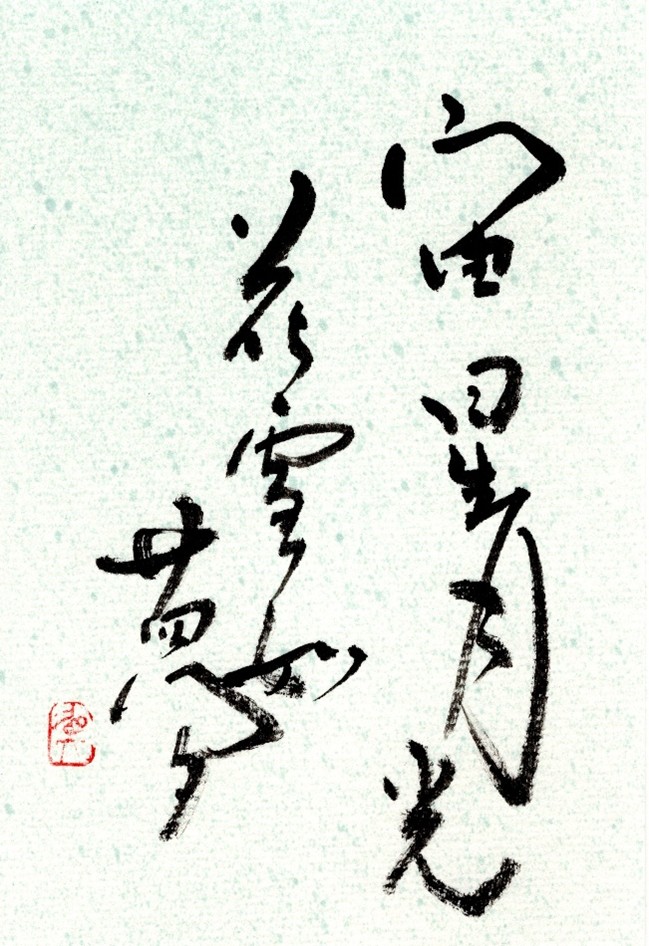 宙星月光
花雪如夢